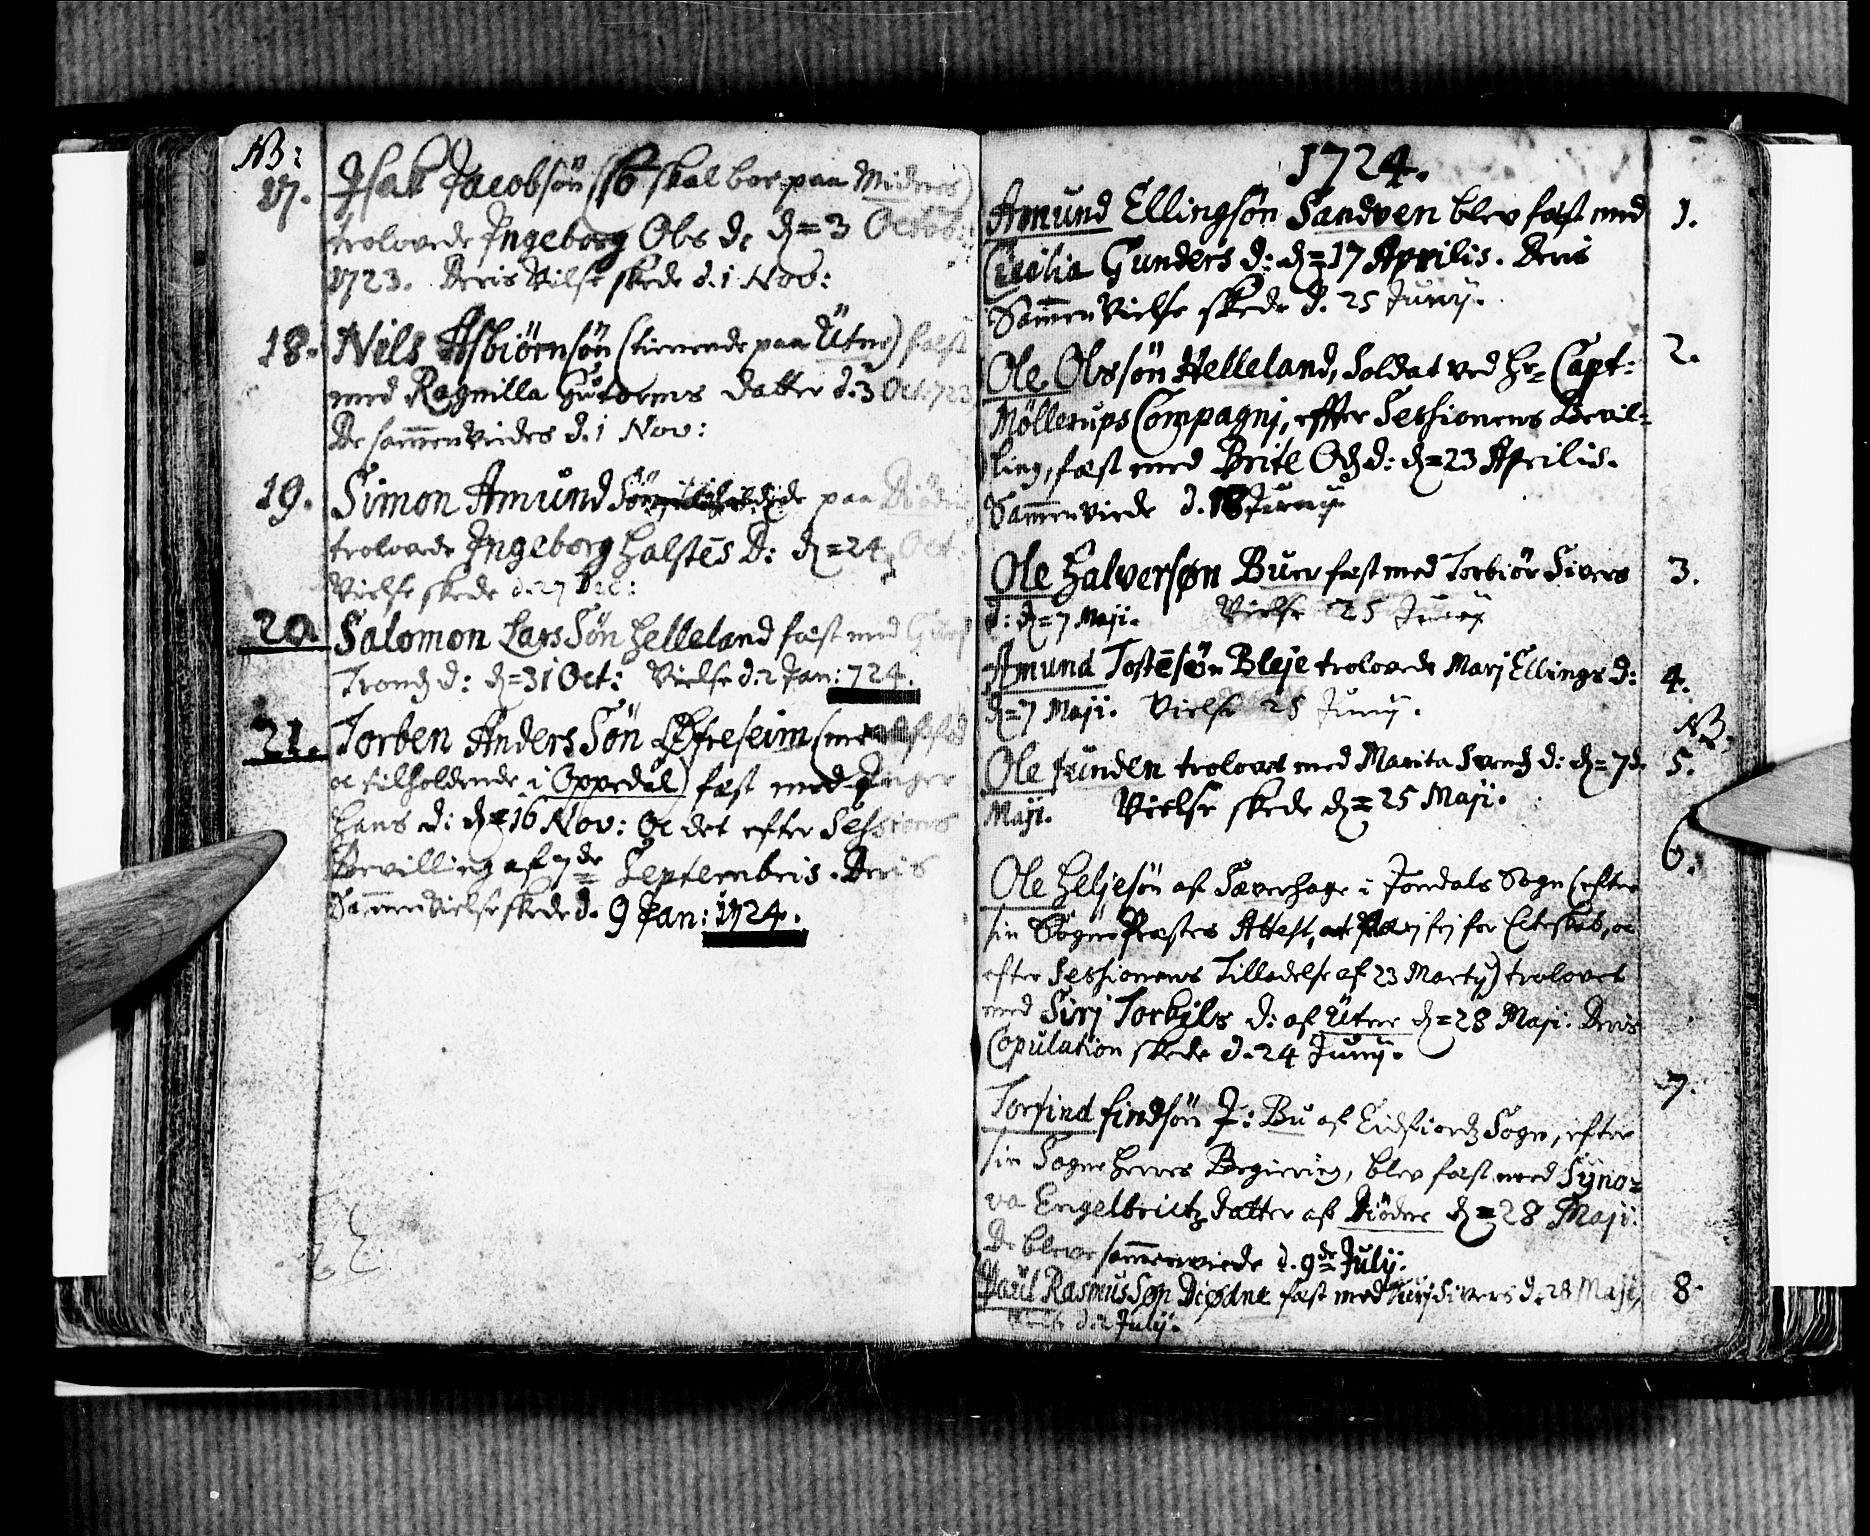 NB:
17. Isak Jacobsön (so skal boe paa Midnes)
trolovede Ingeborg Ols d. dn = 3 Octob:
1723. Deris Vielse skede d. 1 Nov:
18. Nils Asbiörnsön (tienende paa Ütne) fæst
med Ragnilla Gutorms datter d. 3 Oct. 723
De sammenviedes d. 1 Nov:
19. Simon Amundsön paa Diödne
trolovede Ingeborg Halstēs D: dn = 24 Oct:
Vielse skede d. 27 Dec:
20. Salomon LarsSön Helleland fæst med
Trondz d: dn = 31 Oct: Vielse d. 2 Jan: 724.
21. Torben AndersSön Öfreseim
oc tilholdende i Oppedal) fæst med Inger
Hans d: dn = 16 Nov: Oc det efter Sessions
Bevilling af 7de Septembris. Deris
Sammenvielse skede d. 9 Jan: 1724.
1724.
Amund Ellingsön Sandven blev fæst med 1.
Cecilia Gunders d: dn = 17 Aprilis. Deris
Sammen Vielse skede d. 25 Junij.
Ole Olssön Helleland, Soldat ved Hr. Capt: 2.
Möllerups Compagnj, efter Sessionens Bevil=
ling, fæst med Brite Odz d: dn = 23 Aprilis.
Sammenviede d. 18 Junij
Ole Halversøn Buer fæst med Torbiör Sivers 3.
d: dn = 7 Maji. Vielse 25 Junij
Amund Tostēsön Bleje trolovede Marj Ellings d: 4.
dn = 7 Maji. Vielse 25 Junij.
NB.
Ole funden trolovet med Marita Svendz d: dn = 7de 5.
Maji. Vielse skede dn = 25 Maji.
6.
Ole Heljesön af Sæverhage i Jondals Sogn (efter
sin Sogne Præstes Attest, at være frj for Ecteskab, oc
efter Sessionens Tilladelse af 23 Martij) trolovet
med Sirj Torkils d: af Ütne dn = 28 Maji. Deris
Copulation skede d. 24 Junij.
7.
Torfind findsön I: Bu af Eidfiordz Sogn, efter
sin Sogne Herres Begiering, blev fæst med Syno=
va Engelbrictz datter af Diödne dn = 28 Maji.
De bleve sammenviede d. 9de Julij.
Paül RasmusSøn Diødne fæst med Turj Sivers d. 28 Maji, 8.
Vielse d. 2 Julij.